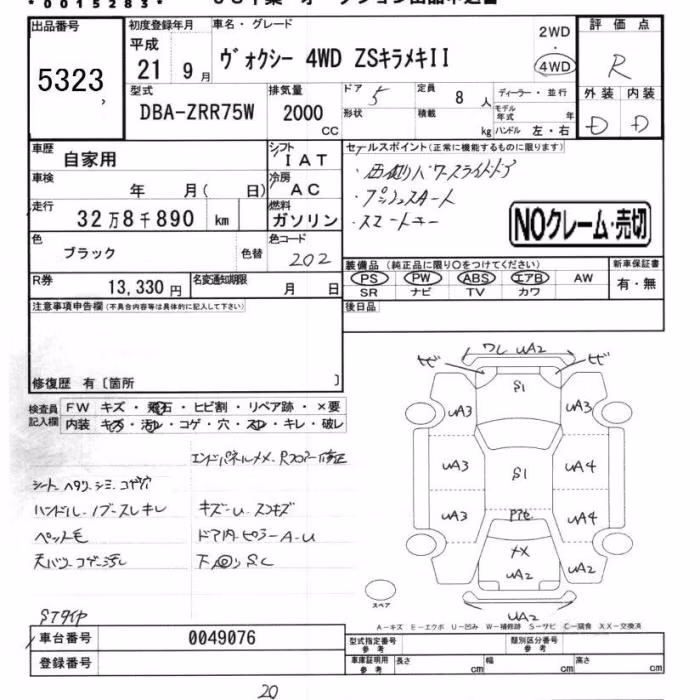 *0015283*
出品番号
5323
初度登録年月
平成
21 9月
車名・グレード
ヴォクシー 4WD ZSキラメキII
2WD
・
4WD
評価点
R
外装 内装
D D
型式
DBA-ZRR75W
排気量
2000
CC
ドア
5
定員
8人
ディーラー・並行
形状
積載
kg
モデル年式
年
ハンドル 左・右
車歴
自家用
シフト
IAT
車検
年 月( 日)
冷房
AC
走行
32万8千890 km
燃料
ガソリン
色
ブラック
色替
色コード
202
R券
13,330円
名変通知期限
月 日
セールスポイント(正常に機能するものに限ります)
・両側パワースライドドア
・プッシュスタート
・スマートキー
NOクレーム・売切
装備品(純正品に限り○をつけてください)
新車保証書
PS PW ABS エアB AW
SR ナビ TV カワ
有・無
後日品
注意事項申告欄(不具合内容等は具体的に記入して下さい)
修復歴 有〔箇所 〕
検査員記入欄
FW キズ・飛石・ヒビ割・リペア跡・×要
内装 キズ・汚れ・コゲ・穴・スレ・キレ・破レ
エンドパネルメメ・Rフロアー修正
シート ヘタリ・シミ・コゲ穴
ハンドル・ノブ・スレキレ
キズ・U・スリキズ
ペット毛
ドア内・ピラーA-U
天バリ コゲ・汚レ
下回りSC
STタイヤ
ワレ UA2
S1
UA3 UA3
UA3 S1 UA4
UA3 UA4
UA2 UA2 UA2
UA2
スペア
A-キズ E-エクボ U-凹み W-補修跡 S-サビ C-腐食 XX-交換済
車台番号
0049076
登録番号
型式指定番号
参考
類別区分番号
参考
車庫証明用
参考
長さ cm
幅 cm
高さ cm
20